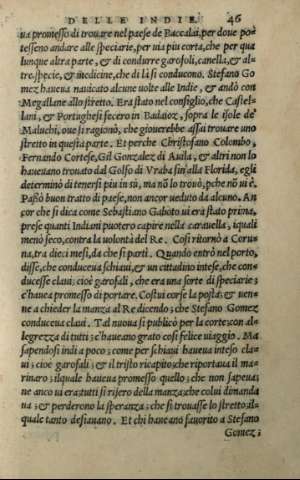 DELLE INDIE. 46
ua promesso di trouare nel paese de Baccalai, per doue po-
tesseno andare alle speciarie, per uia piu corta, che per qua
lunque altra parte, & di condurre garofoli, canella, & al-
tre specie, & medicine, che di li si conducono. Stefano Go
mez haueua nauicato alcune uolte alle Indie, & andò con
Megallane allo stretto. Era stato nel consiglio, che Castel-
lani, & Portughesi fecero in Badaioz, sopra le isole de
Maluchi, oue si ragionò, che giouerebbe assai trouare uno
stretto in questa parte. Et perche Christofano Colombo,
Fernando Cortese, Gil Gonzalez di Auila, & altri non lo
haueuano trouato dal Golfo di Vraba sin'alla Florida, egli
determinò di tenersi piu in sù, ma nō lo trouò, pche nō ui è.
Passò buon tratto di paese, non ancor ueduto da alcuno. An
cor che si dica come Sebastiano Gaboto ui era stato prima,
prese quanti Indiani puotero capire nella carauella, iquali
menò seco, contra la uolontà del Re. Cosi ritornò a Coru-
na, tra dieci mesi, da che si partì. Quando entrò nel porto,
disse, che conduceua schiaui, & un cittadino intese, che con-
ducesse claui; cioè garofali, che era una sorte di speciarie;
c'haueua promesso di portare. Costui corse la posta; & uen-
ne a chieder la manza al Re dicendo; che Stefano Gomez
conduceua claui. Tal nuoua si publicò per la corte; con al-
legrezza di tutti; c'haueano grato cosi felice uiaggio. Ma
sapendosi indi a poco; come per schiaui haueua inteso cla-
ui; cioè garofali; & il tristo ricapito; che riportaua il ma-
rinaro; ilquale haueua promesso quello; che non sapeua;
ne anco ui era; tutti si risero della manza; che colui dimanda
ua; & perderono la speranza; che si trouasse lo stretto; al-
quale tanto desiauano. Et chi haueano fauorito a Stefano
Gomez;